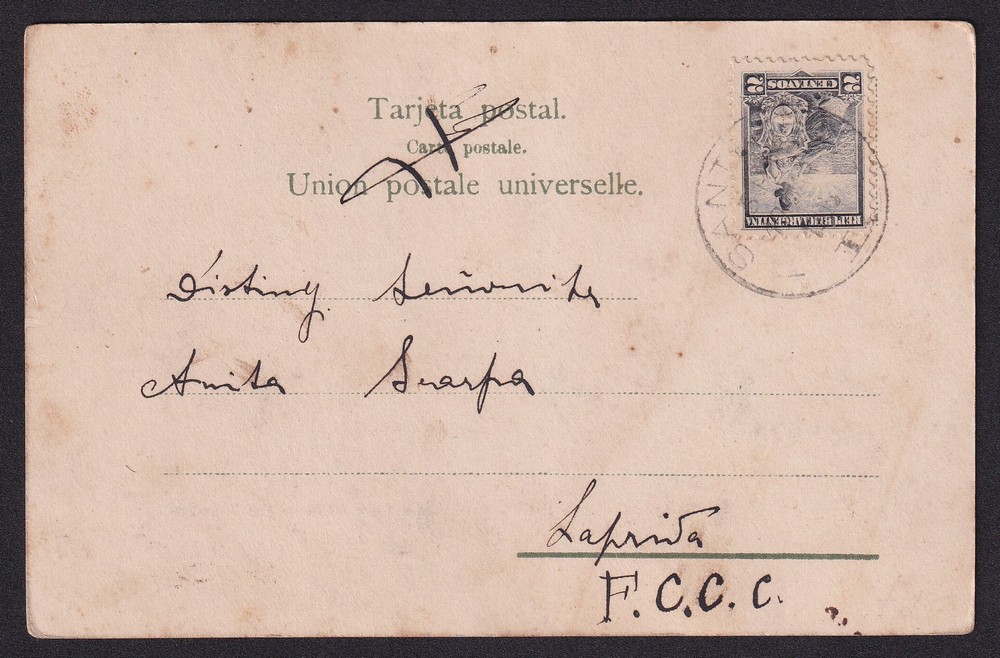 Tarjeta postal.
Carte postale.
Union postale universelle.
2 CENTAVOS 2
REPUBLICA ARGENTINA
SANTA
Disting Señorita
Anita Scarpa
Laprida
F.C.C.C.